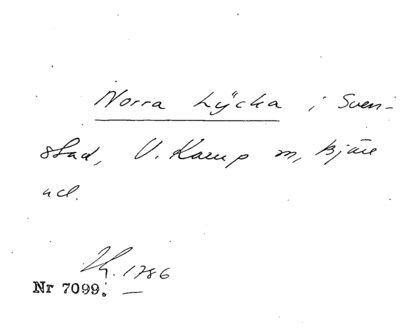 Norra Lÿcka i Sven-
stad, V. Karup sn, Bjäre
hd.
Lh. 1786
Nr 7099.